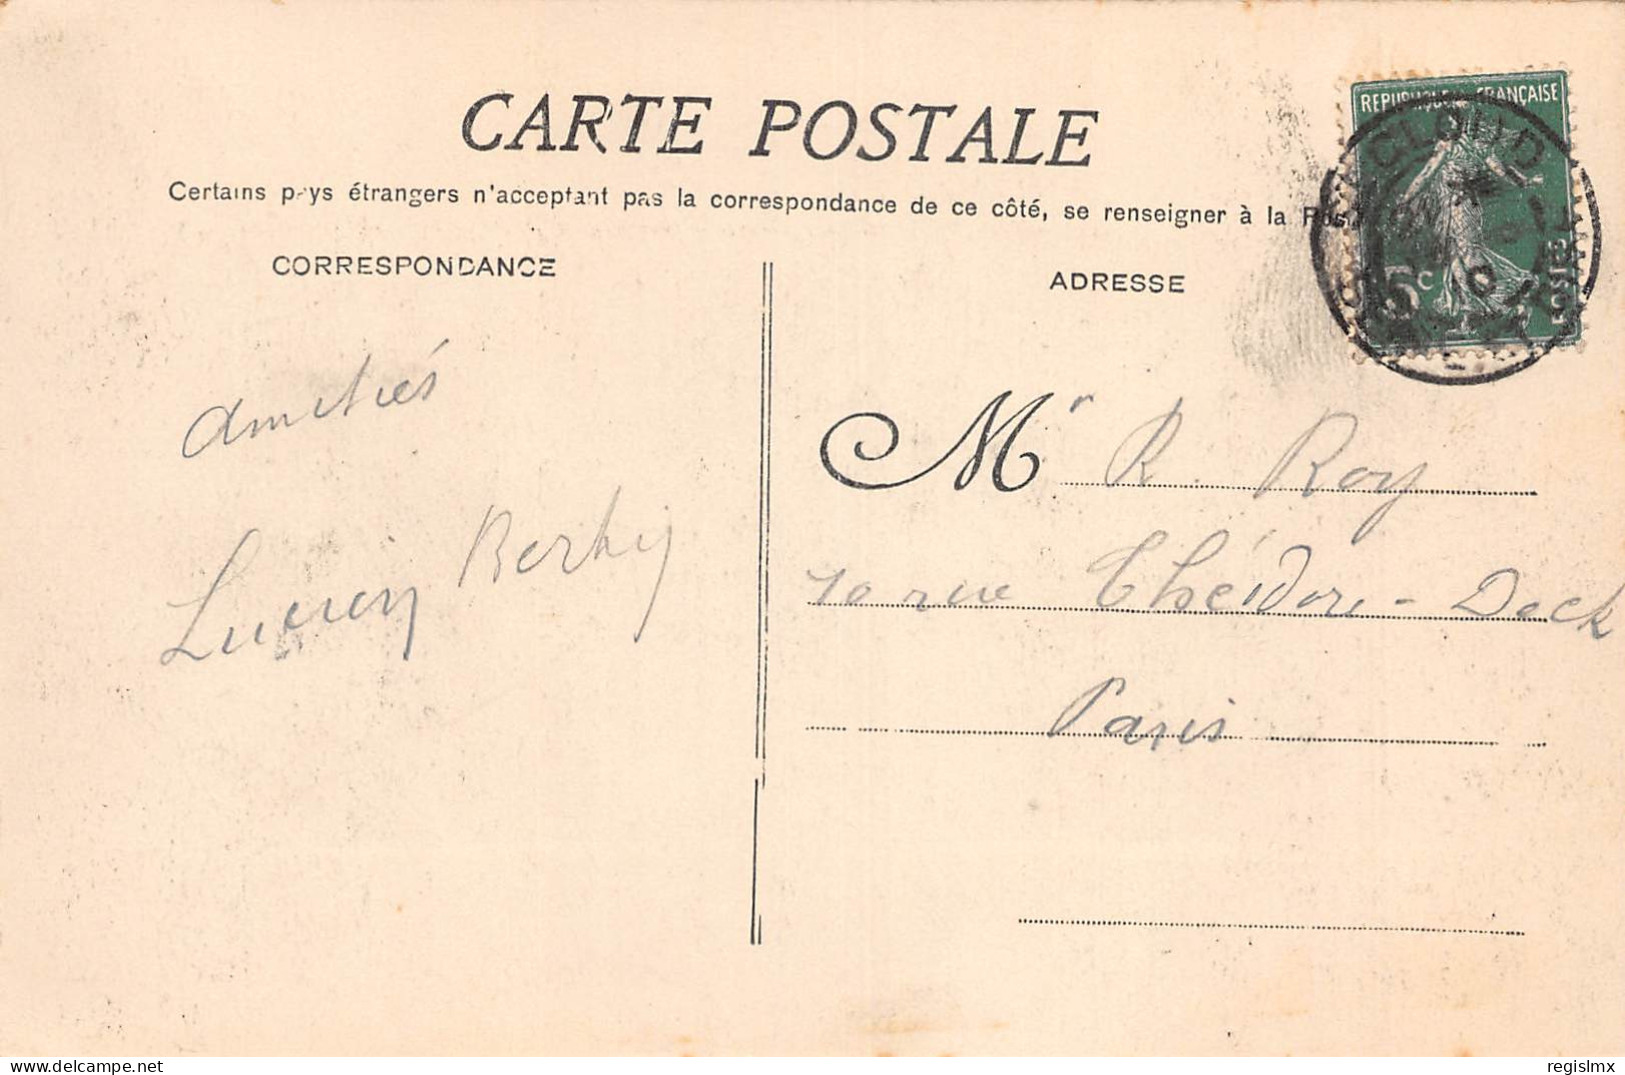 CARTE POSTALE
Certains pays étrangers n'acceptant pas la correspondance de ce côté, se renseigner à la Poste
CORRESPONDANCE
ADRESSE
REPUBLIQUE FRANÇAISE
5c
POSTES
CLOUD
Amitiés
Lucien
Mr R. Roy
10 rue Théodore-Deck
Paris
www.delcampe.net
regislmx